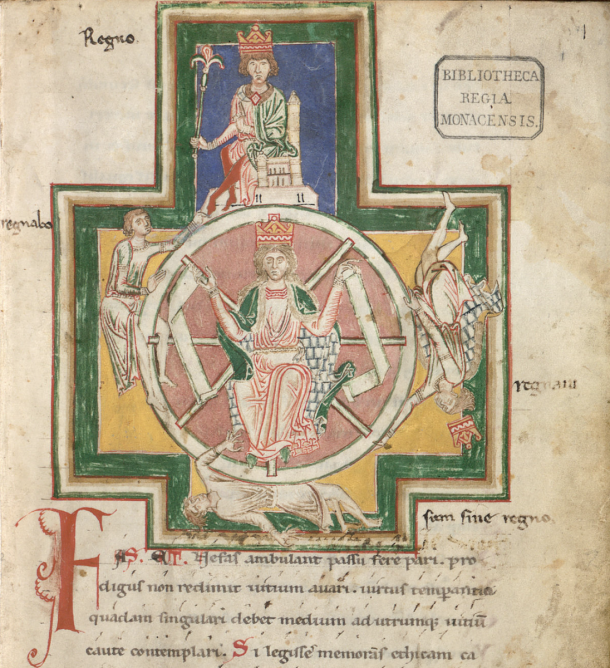 Regno.
BIBLIOTHECA
REGIA
MONACENSIS.
regnabo
regnaui
sum sine regno.
FAS. ET. Nefas ambulant passu fere pari. pro
digus non redimit uitium auari. uirtus temperantia
quadam singulari debet medium ad utrumq; uitiũ
caute contemplari. Si legisse memoras ethicam ca